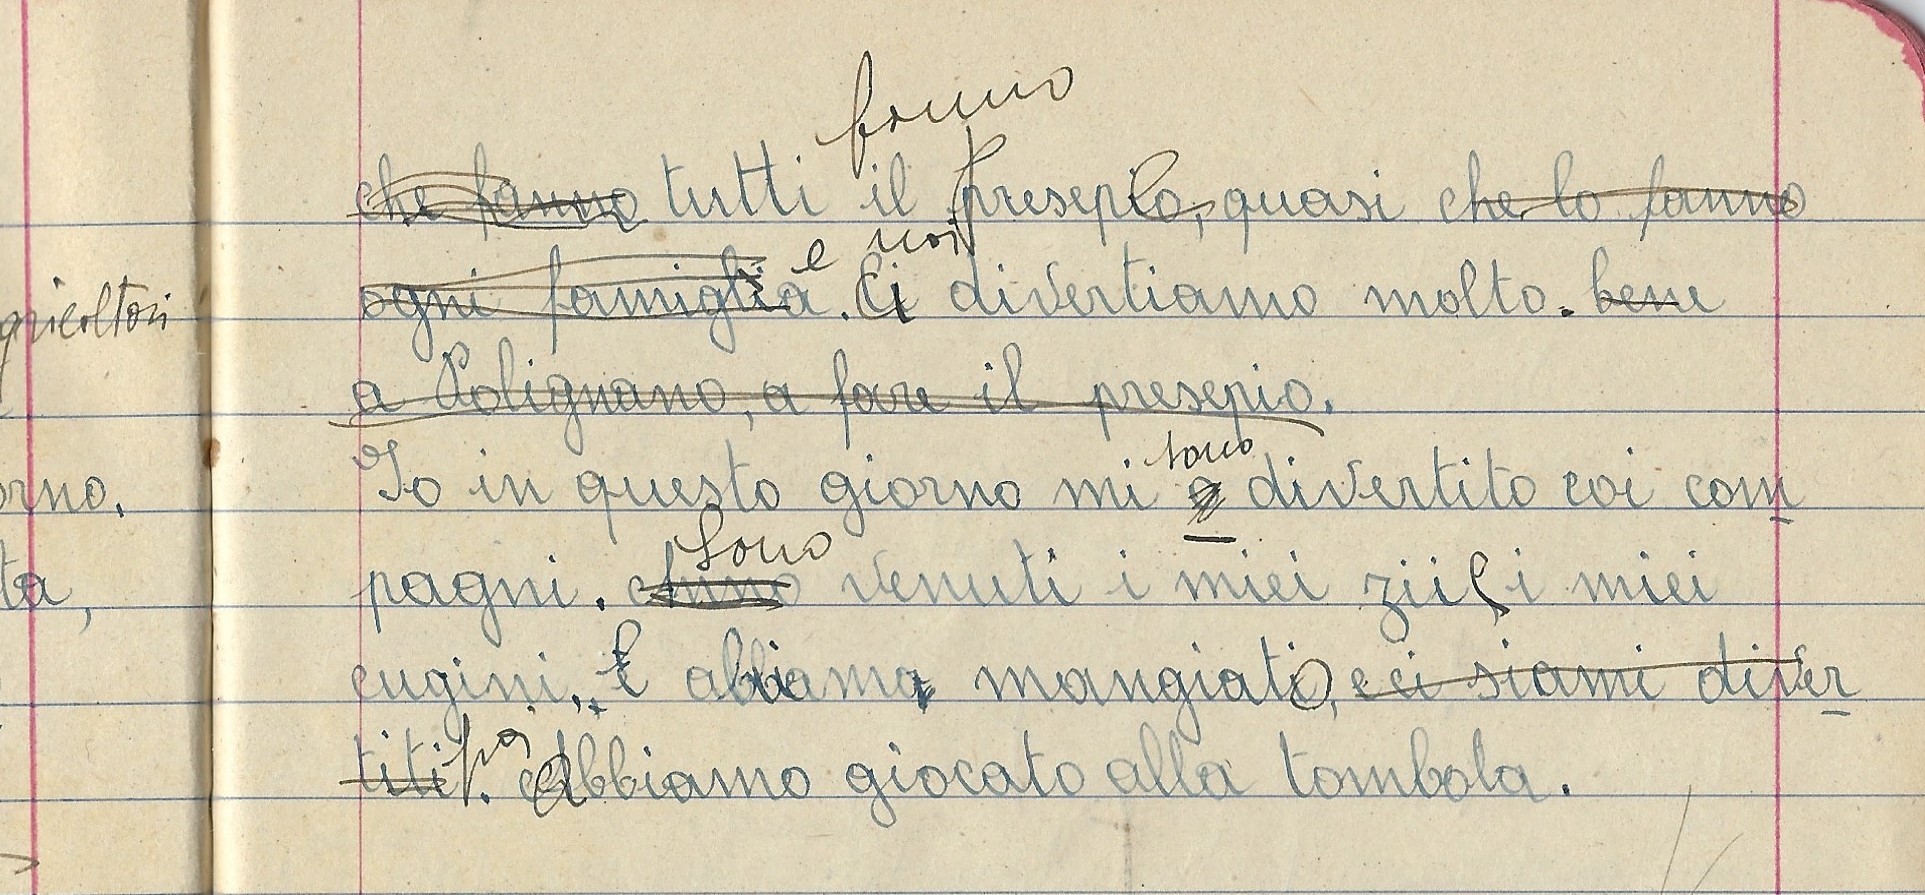 fanno
che fanno tutti il presepio, quasi che lo fanno
e noi
ogni famiglia. Ci divertiamo molto. bene
gricoltori
a Polignano, a fare il presepio.
sono
orno.
Io in questo giorno mi o divertito coi com
Sono
ta,
pagni. Anno venuti i miei zii e i miei
cugini, E abbiamo mangiato, e ci siami diver
titi. poi Abbiamo giocato alla tombola.